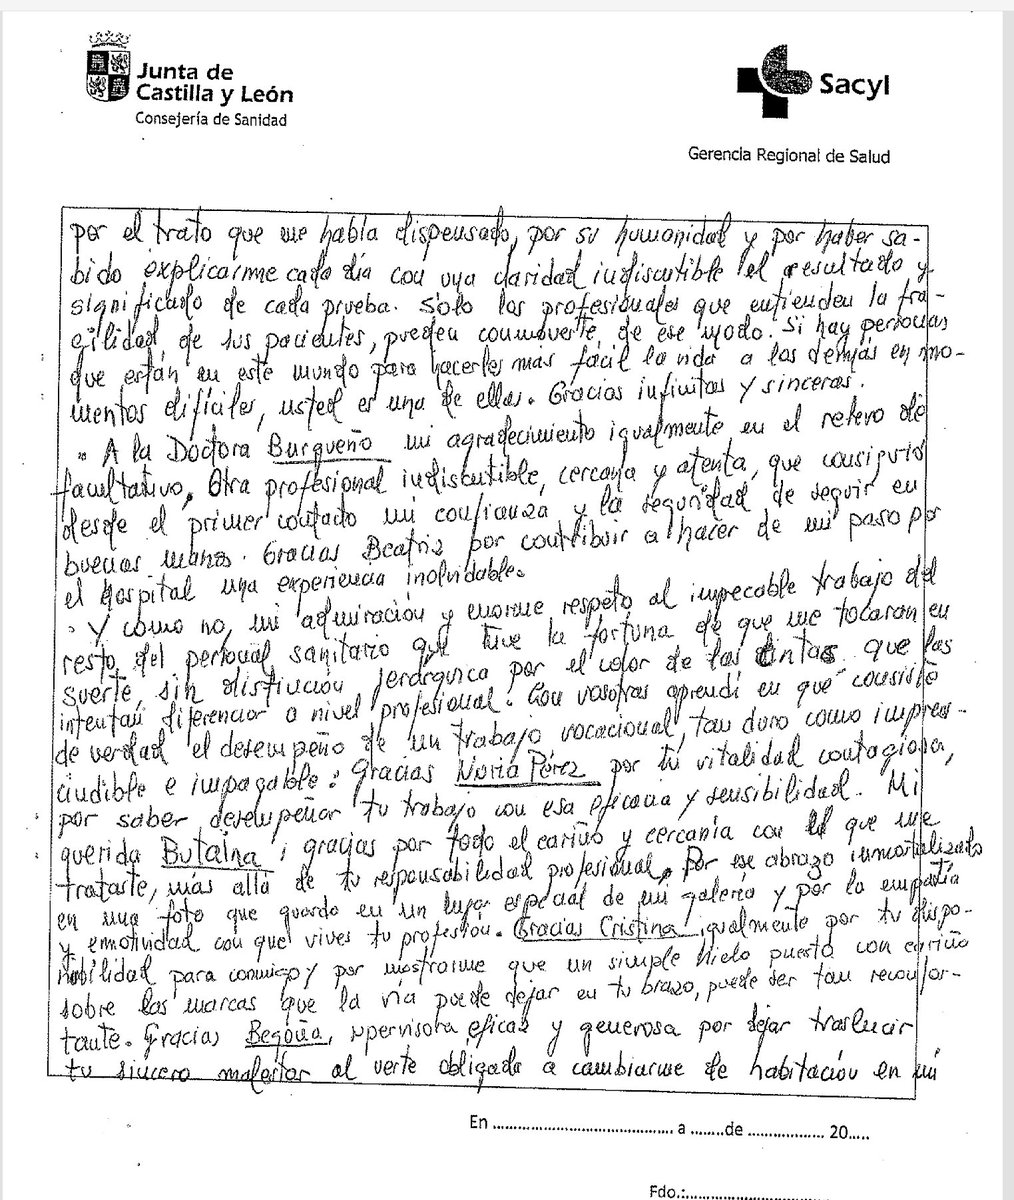 Junta de
Castilla y León
Consejería de Sanidad
Sacyl
Gerencia Regional de Salud
por el trato que me había dispensado, por su humanidad y por haber sa-
bido explicarme cada día con una claridad indiscutible el resultado y
significado de cada prueba. Solo los profesionales que entienden la fra-
gilidad de sus pacientes, pueden conmoverte de ese modo. Si hay personas
que están en este mundo para hacerles más fácil la vida a los demás en mo-
mentos difíciles, usted es una de ellas. Gracias infinitas y sinceras.
• A la Doctora Burgueño mi agradecimiento igualmente en el relevo de
facultativo. Otra profesional indiscutible, cercana y atenta, que consiguió
desde el primer contacto mi confianza y la seguridad de seguir en
buenas manos. Gracias Beatriz por contribuir a hacer de mi paso por
el hospital una experiencia inolvidable.
• Y como no, mi admiración y enorme respeto al impecable trabajo del
resto del personal sanitario que tuve la fortuna de que me tocaran en
suerte, sin distinción jerárquica por el color de las cintas que las
intentan diferenciar a nivel profesional. Con vosotras aprendí en qué consiste
de verdad el desempeño de un trabajo vocacional, tan duro como impres-
cindible e impagable: Gracias Nuria Pérez por tu vitalidad contagiosa,
por saber desempeñar tu trabajo con esa eficacia y sensibilidad. Mi
querida Butaina, gracias por todo el cariño y cercanía con el que me
trataste, más allá de tu responsabilidad profesional. Por ese abrazo inmortalizado
en una foto que guardo en un lugar especial de mi galería y por la empatía
y emotividad con que vives tu profesión. Gracias Cristina igualmente por tu dispo-
nibilidad para conmigo y por mostrarme que un simple hielo puesto con cariño
sobre las marcas que la vía puede dejar en tu brazo, puede ser tan reconfor-
tante. Gracias Begoña, supervisora eficaz y generosa por dejar traslucir
tu sincero malestar al verte obligada a cambiarme de habitación en mi
En ........................................ a ........de .................. 20.....
Fdo.:................................